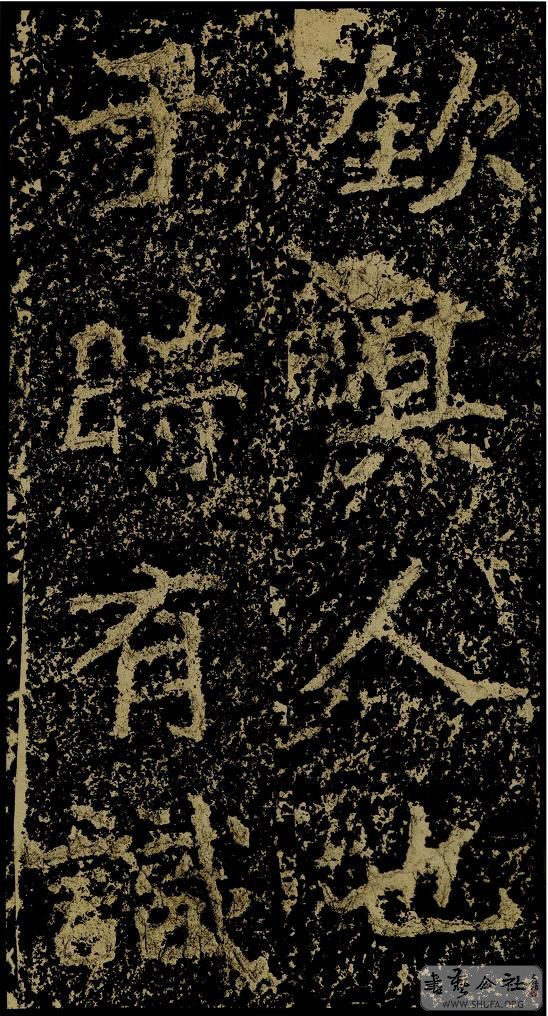 欽其人也
于時有識
書藝公社
WWW.SHUFA.ORG